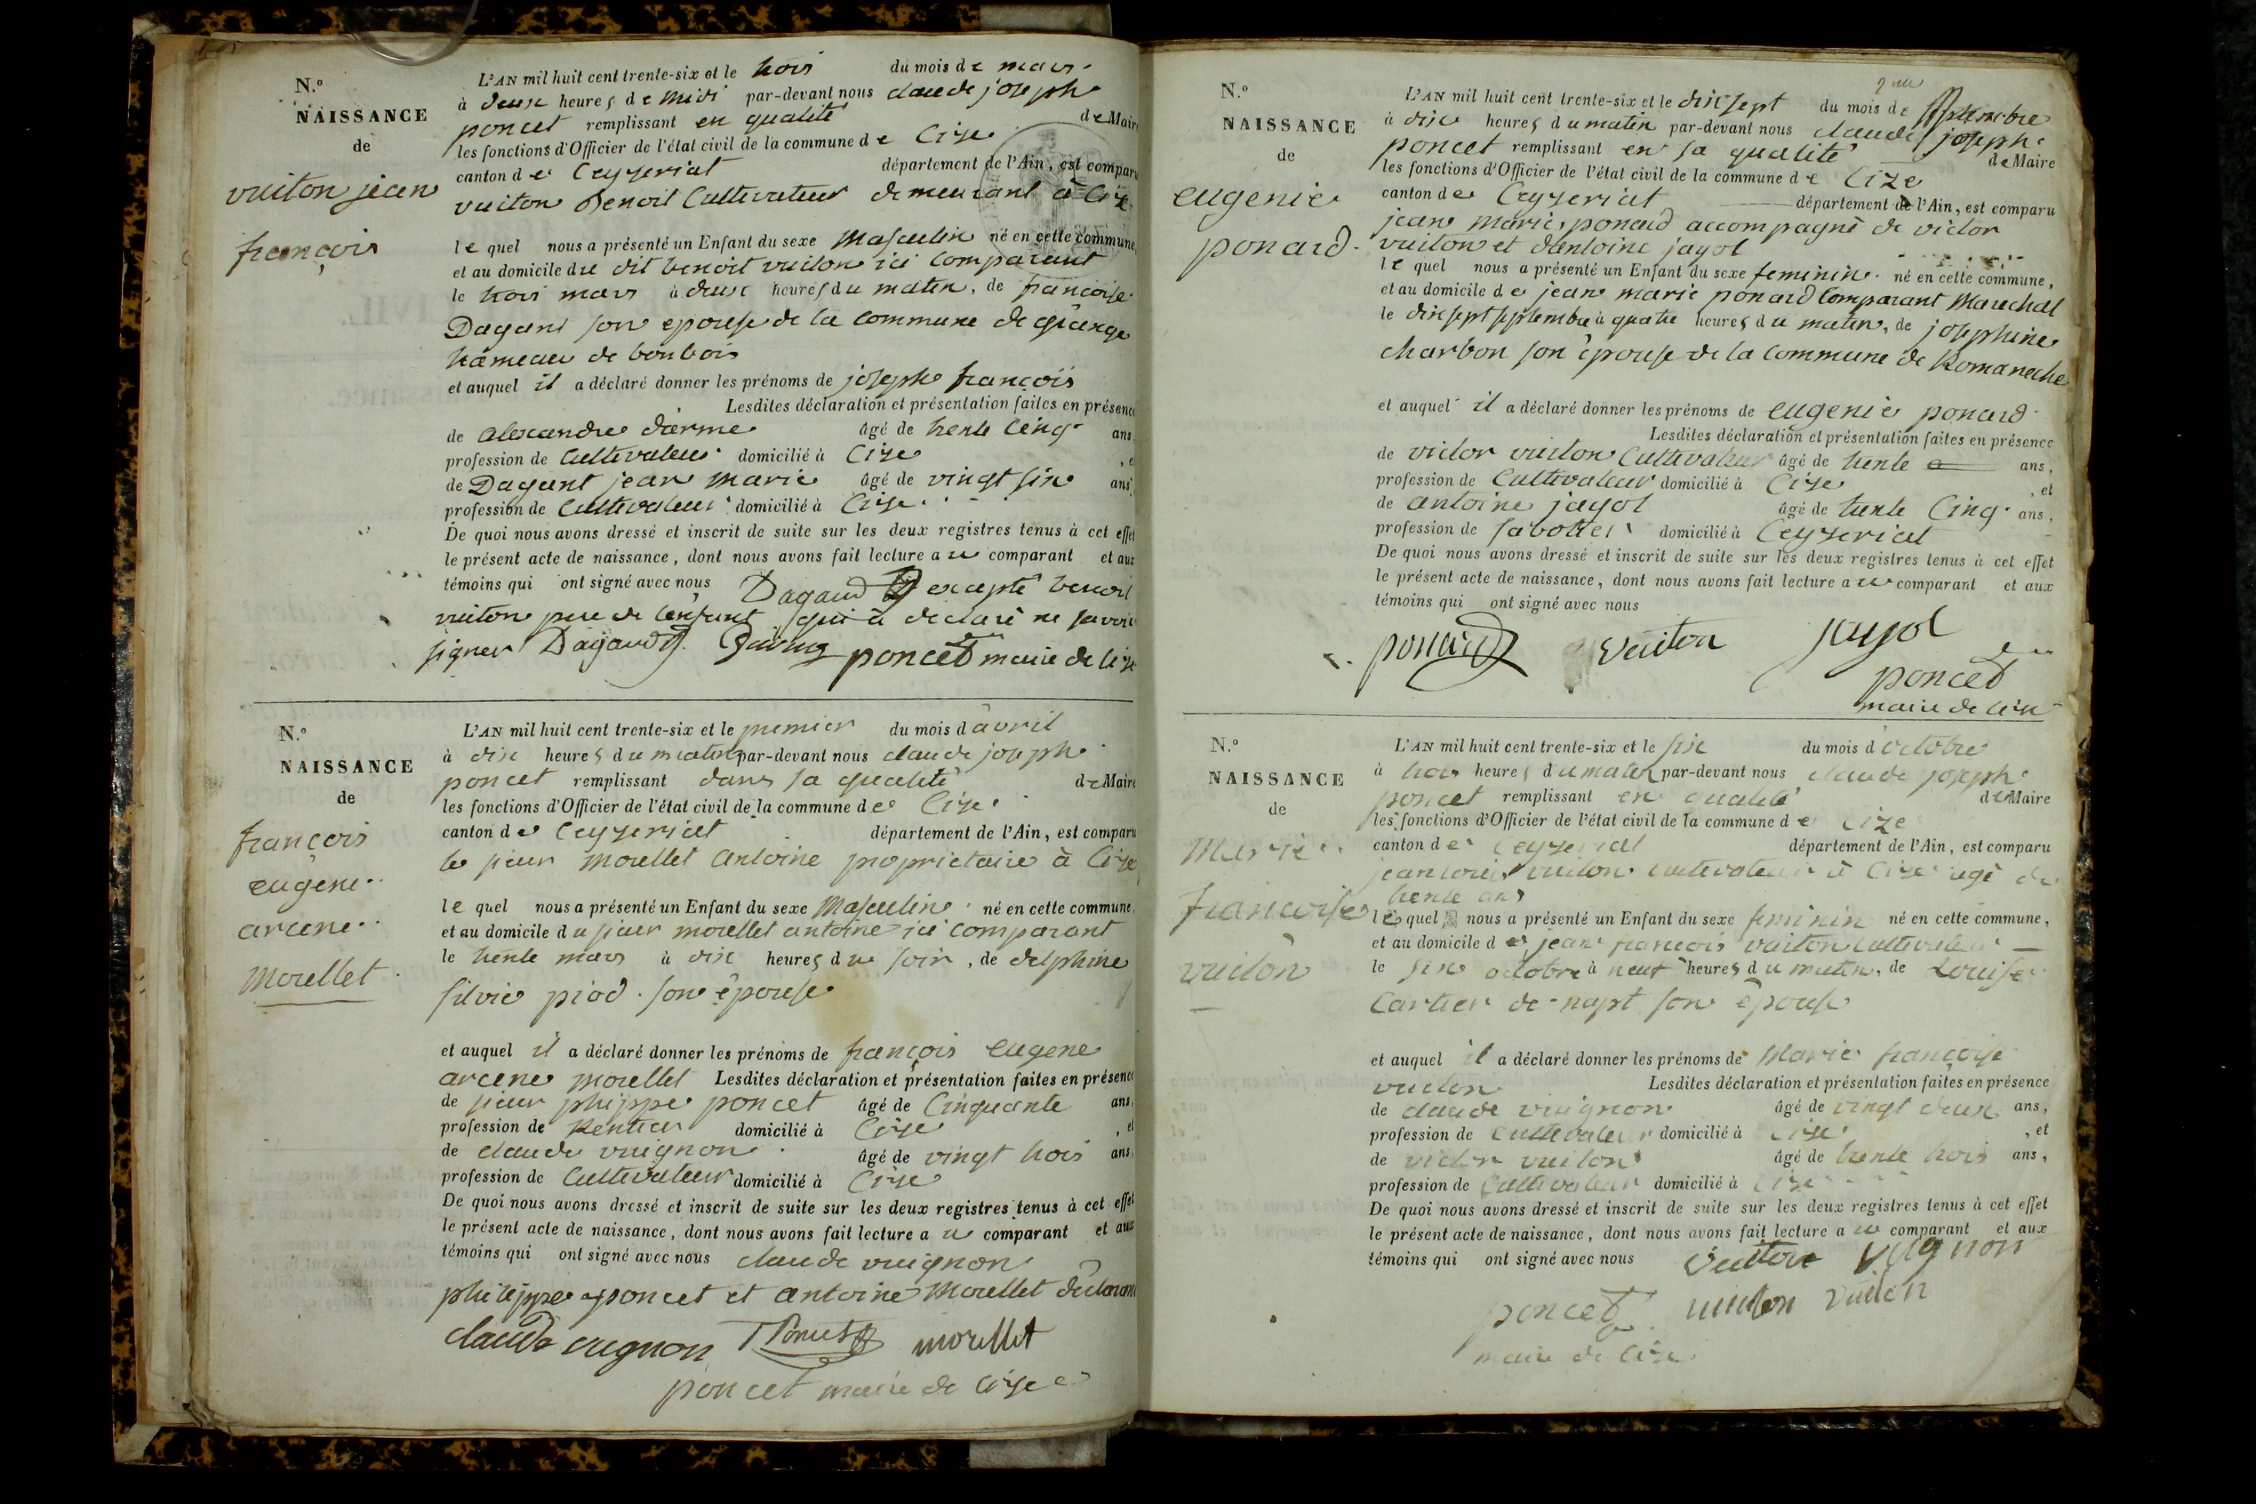 N.o
NAISSANCE
de
vuiton jean
françois
L'AN mil huit cent trente-six et le trois du mois de mars
à deux heures de midi par-devant nous claude joseph
poncet remplissant en qualité de Maire
les fonctions d'Officier de l'état civil de la commune de Cize
canton de Ceyzeriat département de l'Ain, est comparu
vuiton Benoit Cultivateur demeurant à Cize
le quel nous a présenté un Enfant du sexe Masculin né en cette commune,
et au domicile du dit benoit vuiton ici comparant
le trois mars à deux heures du matin, de françoise
Dagant son epouse de la commune de grange
hameau de bonbois
et auquel il a déclaré donner les prénoms de joseph françois
Lesdites déclaration et présentation faites en présence
de alexandre darme âgé de trente cinq ans,
profession de Cultivateur domicilié à Cize , et
de Dagant jean marie âgé de vingt six ans,
profession de Cultivateur domicilié à Cize
De quoi nous avons dressé et inscrit de suite sur les deux registres tenus à cet effet
le présent acte de naissance, dont nous avons fait lecture au comparant et aux
témoins qui ont signé avec nous Dagand excepté benoit
vuiton pere de lenfant qui à declaré ne savoir
signer Dagaud poncet maire de Cize
N.o
NAISSANCE
de
françois
eugene
arcene
Morellet
L'AN mil huit cent trente-six et le premier du mois d'avril
à dix heures du matin par-devant nous claude joseph
poncet remplissant dans sa qualité de Maire
les fonctions d'Officier de l'état civil de la commune de Cize
canton de Ceyzeriat département de l'Ain, est comparu
le sieur Morellet Antoine proprietaire à Cize
le quel nous a présenté un Enfant du sexe Masculin né en cette commune,
et au domicile du sieur morellet antoine ici comparant
le trente mars à dix heures du soir, de delphine
silvie piod son épouse
et auquel il a déclaré donner les prénoms de françois eugene
arcene morellet Lesdites déclaration et présentation faites en présence
de sieur phippe poncet âgé de Cinquante ans,
profession de Rentier domicilié à Cize , et
de claude vuignon âgé de vingt trois ans,
profession de Cultivateur domicilié à Cize
De quoi nous avons dressé et inscrit de suite sur les deux registres tenus à cet effet
le présent acte de naissance, dont nous avons fait lecture au comparant et aux
témoins qui ont signé avec nous claude vuignon
philippe poncet et antoine Morellet déclarant
claude vugnon Poncet morellet
poncet maire de cize
N.o
NAISSANCE
de
eugenie
ponard
L'AN mil huit cent trente-six et le dix sept du mois de septembre
à dix heures du matin par-devant nous claude joseph
poncet remplissant en sa qualité de Maire
les fonctions d'Officier de l'état civil de la commune de Cize
canton de Ceyzeriat département de l'Ain, est comparu
jean marie ponard accompagné de victor
vuiton et d'antoine jayol
le quel nous a présenté un Enfant du sexe feminin né en cette commune,
et au domicile de jean marie ponard Comparant Marechal
le dix sept septembre à quatre heures du matin, de josephine
charbon son épouse de la commune de Romaneche
et auquel il a déclaré donner les prénoms de eugenie ponard
Lesdites déclaration et présentation faites en présence
de victor vuiton Cultivateur âgé de trente ans,
profession de Cultivateur domicilié à Cize , et
de antoine jayol âgé de trente Cinq ans,
profession de sabotier domicilié à Ceyzeriat
De quoi nous avons dressé et inscrit de suite sur les deux registres tenus à cet effet
le présent acte de naissance, dont nous avons fait lecture au comparant et aux
témoins qui ont signé avec nous
ponard vuiton jayol
poncet
maire de Cize
N.o
NAISSANCE
de
Marie
francoise
vuiton
L'AN mil huit cent trente-six et le six du mois d'octobre
à trois heures du matin par-devant nous claude joseph
poncet remplissant en qualité de Maire
les fonctions d'Officier de l'état civil de la commune de Cize
canton de Ceyzeriat département de l'Ain, est comparu
jean vuiton cultivateur à Cize agé de
trente ans
le quel nous a présenté un Enfant du sexe feminin né en cette commune,
et au domicile de jean francois vuiton cultivateur
le six octobre à neuf heures du matin, de Louise
Cartier de napt son épouse
et auquel il a déclaré donner les prénoms de Marie françoise
vuiton Lesdites déclaration et présentation faites en présence
de claude vuignon âgé de vingt deux ans,
profession de Cultivateur domicilié à Cize , et
de victor vuiton âgé de trente trois ans,
profession de Cultivateur domicilié à Cize
De quoi nous avons dressé et inscrit de suite sur les deux registres tenus à cet effet
le présent acte de naissance, dont nous avons fait lecture au comparant et aux
témoins qui ont signé avec nous vuiton vugnon
poncet vuiton vuiton
maire de Cize